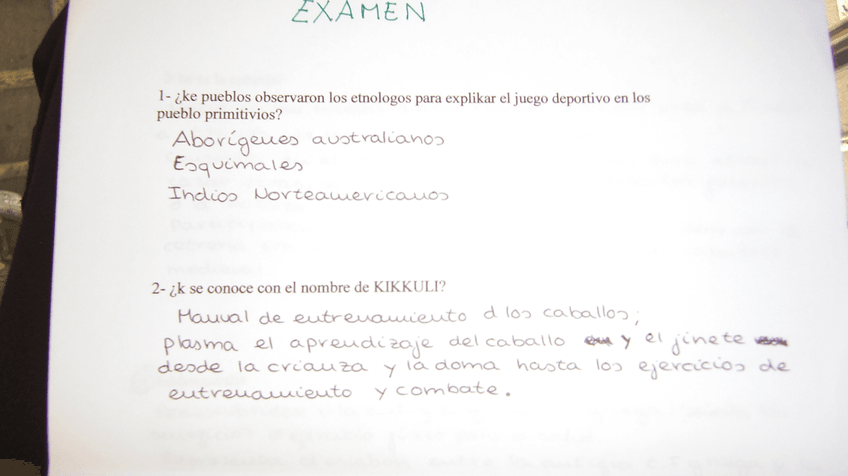 EXAMEN
1- ¿ke pueblos observaron los etnologos para explikar el juego deportivo en los
pueblo primitivios?
Aborígenes australianos
Esquimales
Indios Norteamericanos
2- ¿k se conoce con el nombre de KIKKULI?
Manual de entrenamiento d los caballos;
plasma el aprendizaje del caballo y el jinete
desde la crianza y la doma hasta los ejercicios de
entrenamiento y combate.